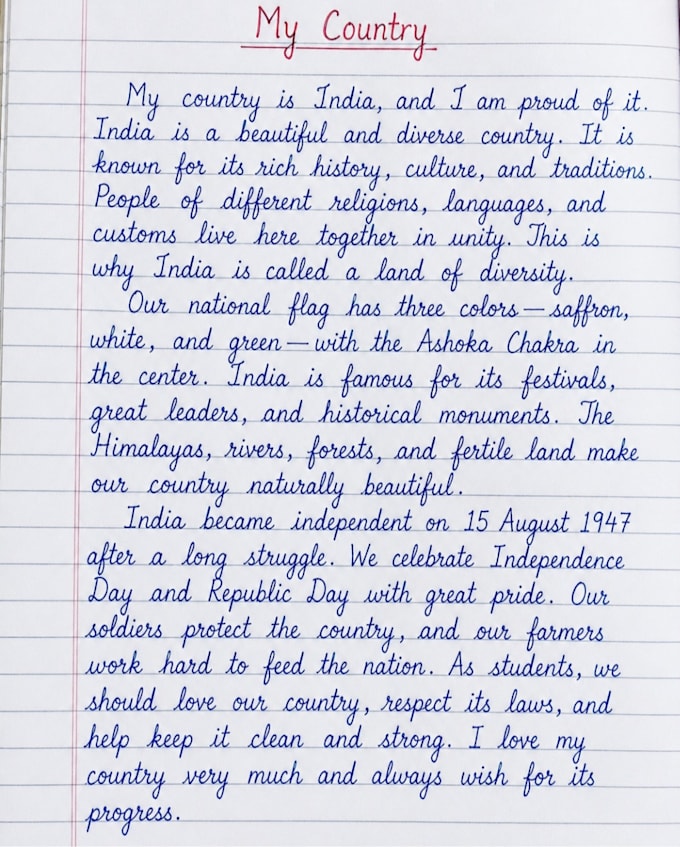 My Country
My country is India, and I am proud of it.
India is a beautiful and diverse country. It is
known for its rich history, culture, and traditions.
People of different religions, languages, and
customs live here together in unity. This is
why India is called a land of diversity.
Our national flag has three colors — saffron,
white, and green — with the Ashoka Chakra in
the center. India is famous for its festivals,
great leaders, and historical monuments. The
Himalayas, rivers, forests, and fertile land make
our country naturally beautiful.
India became independent on 15 August 1947
after a long struggle. We celebrate Independence
Day and Republic Day with great pride. Our
soldiers protect the country, and our farmers
work hard to feed the nation. As students, we
should love our country, respect its laws, and
help keep it clean and strong. I love my
country very much and always wish for its
progress.